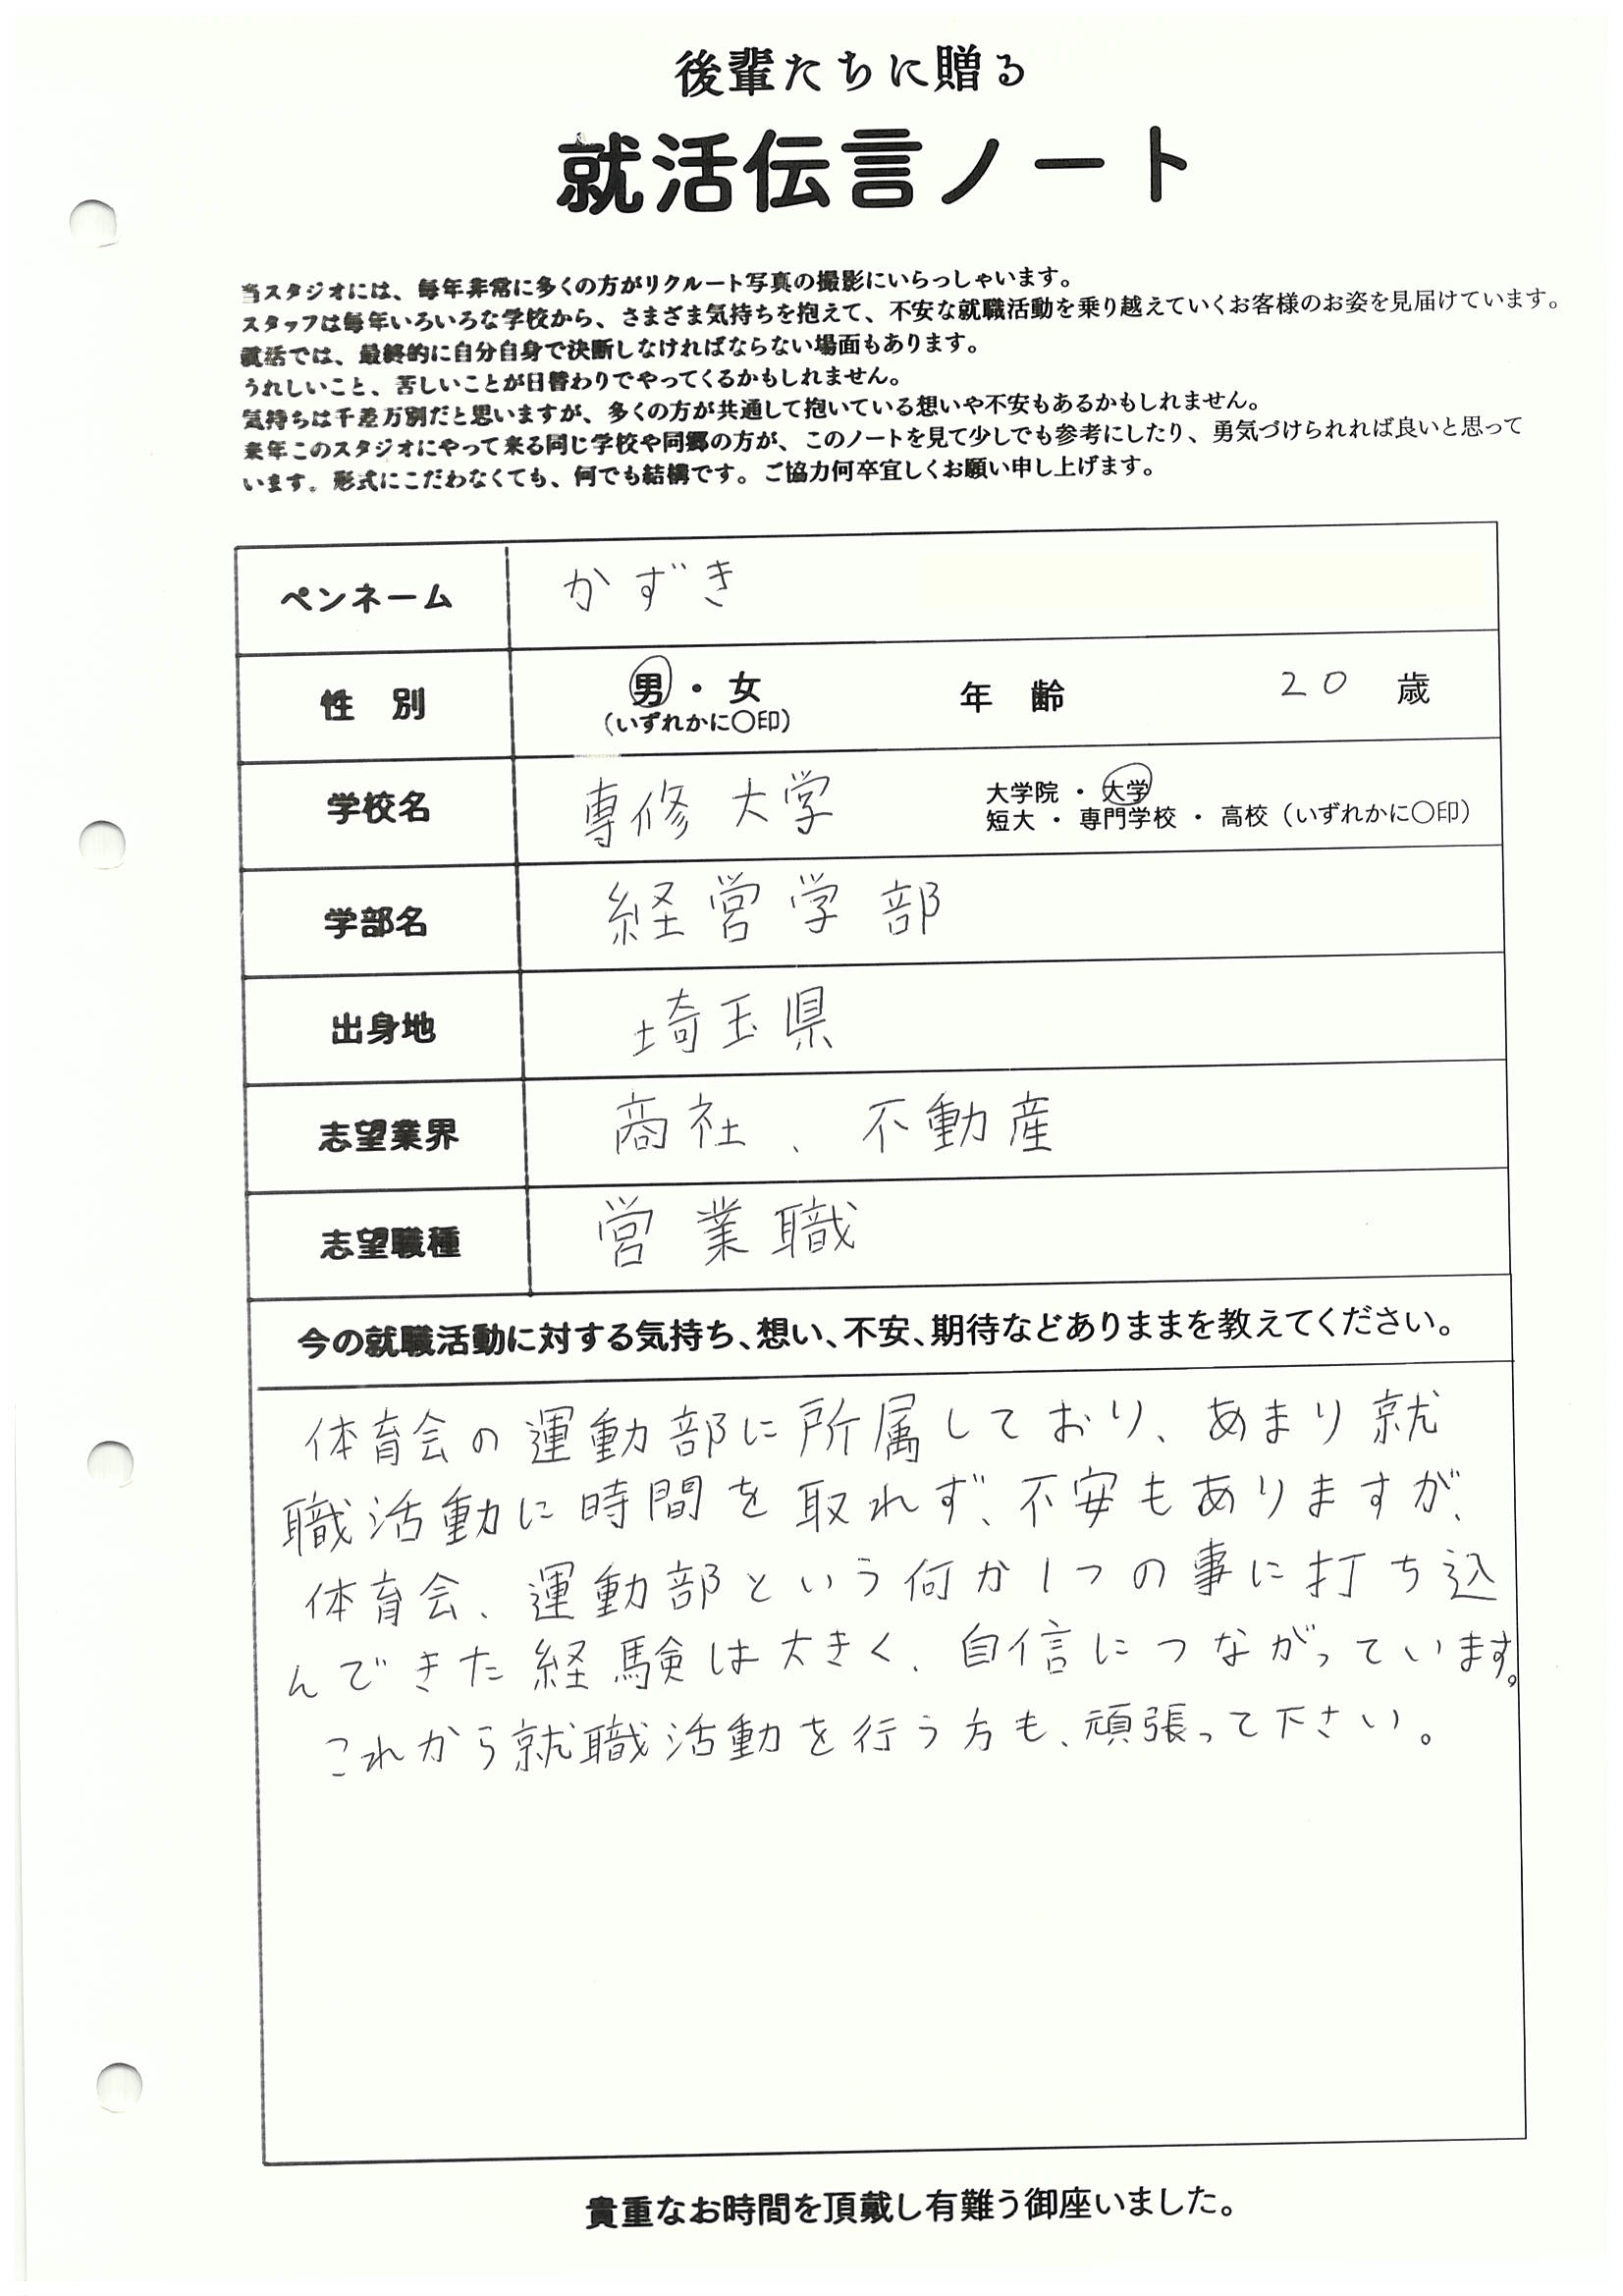 後輩たちに贈る
就活伝言ノート
当スタジオには、毎年非常に多くの方がリクルート写真の撮影にいらっしゃいます。
スタッフは毎年いろいろな学校から、さまざま気持ちを抱えて、不安な就職活動を乗り越えていくお客様のお姿を見届けています。
就活では、最終的に自分自身で決断しなければならない場面もあります。
うれしいこと、苦しいことが日替わりでやってくるかもしれません。
気持ちは千差万別だと思いますが、多くの方が共通して抱いている想いや不安もあるかもしれません。
来年このスタジオにやって来る同じ学校や同郷の方が、このノートを見て少しでも参考にしたり、勇気づけられれば良いと思って
います。形式にこだわなくても、何でも結構です。ご協力何卒宜しくお願い申し上げます。
ペンネーム かずき
性 別 男・女 年 齢 20 歳
(いずれかに○印)
学校名 専修大学 大学院 ・ 大学
短大 ・ 専門学校 ・ 高校(いずれかに○印)
学部名 経営学部
出身地 埼玉県
志望業界 商社、不動産
志望職種 営業職
今の就職活動に対する気持ち、想い、不安、期待などありままを教えてください。
体育会の運動部に所属しており、あまり就
職活動に時間を取れず、不安もありますが、
体育会、運動部という何か1つの事に打ち込
んできた経験は大きく、自信につながっています。
これから就職活動を行う方も、頑張って下さい。
貴重なお時間を頂戴し有難う御座いました。